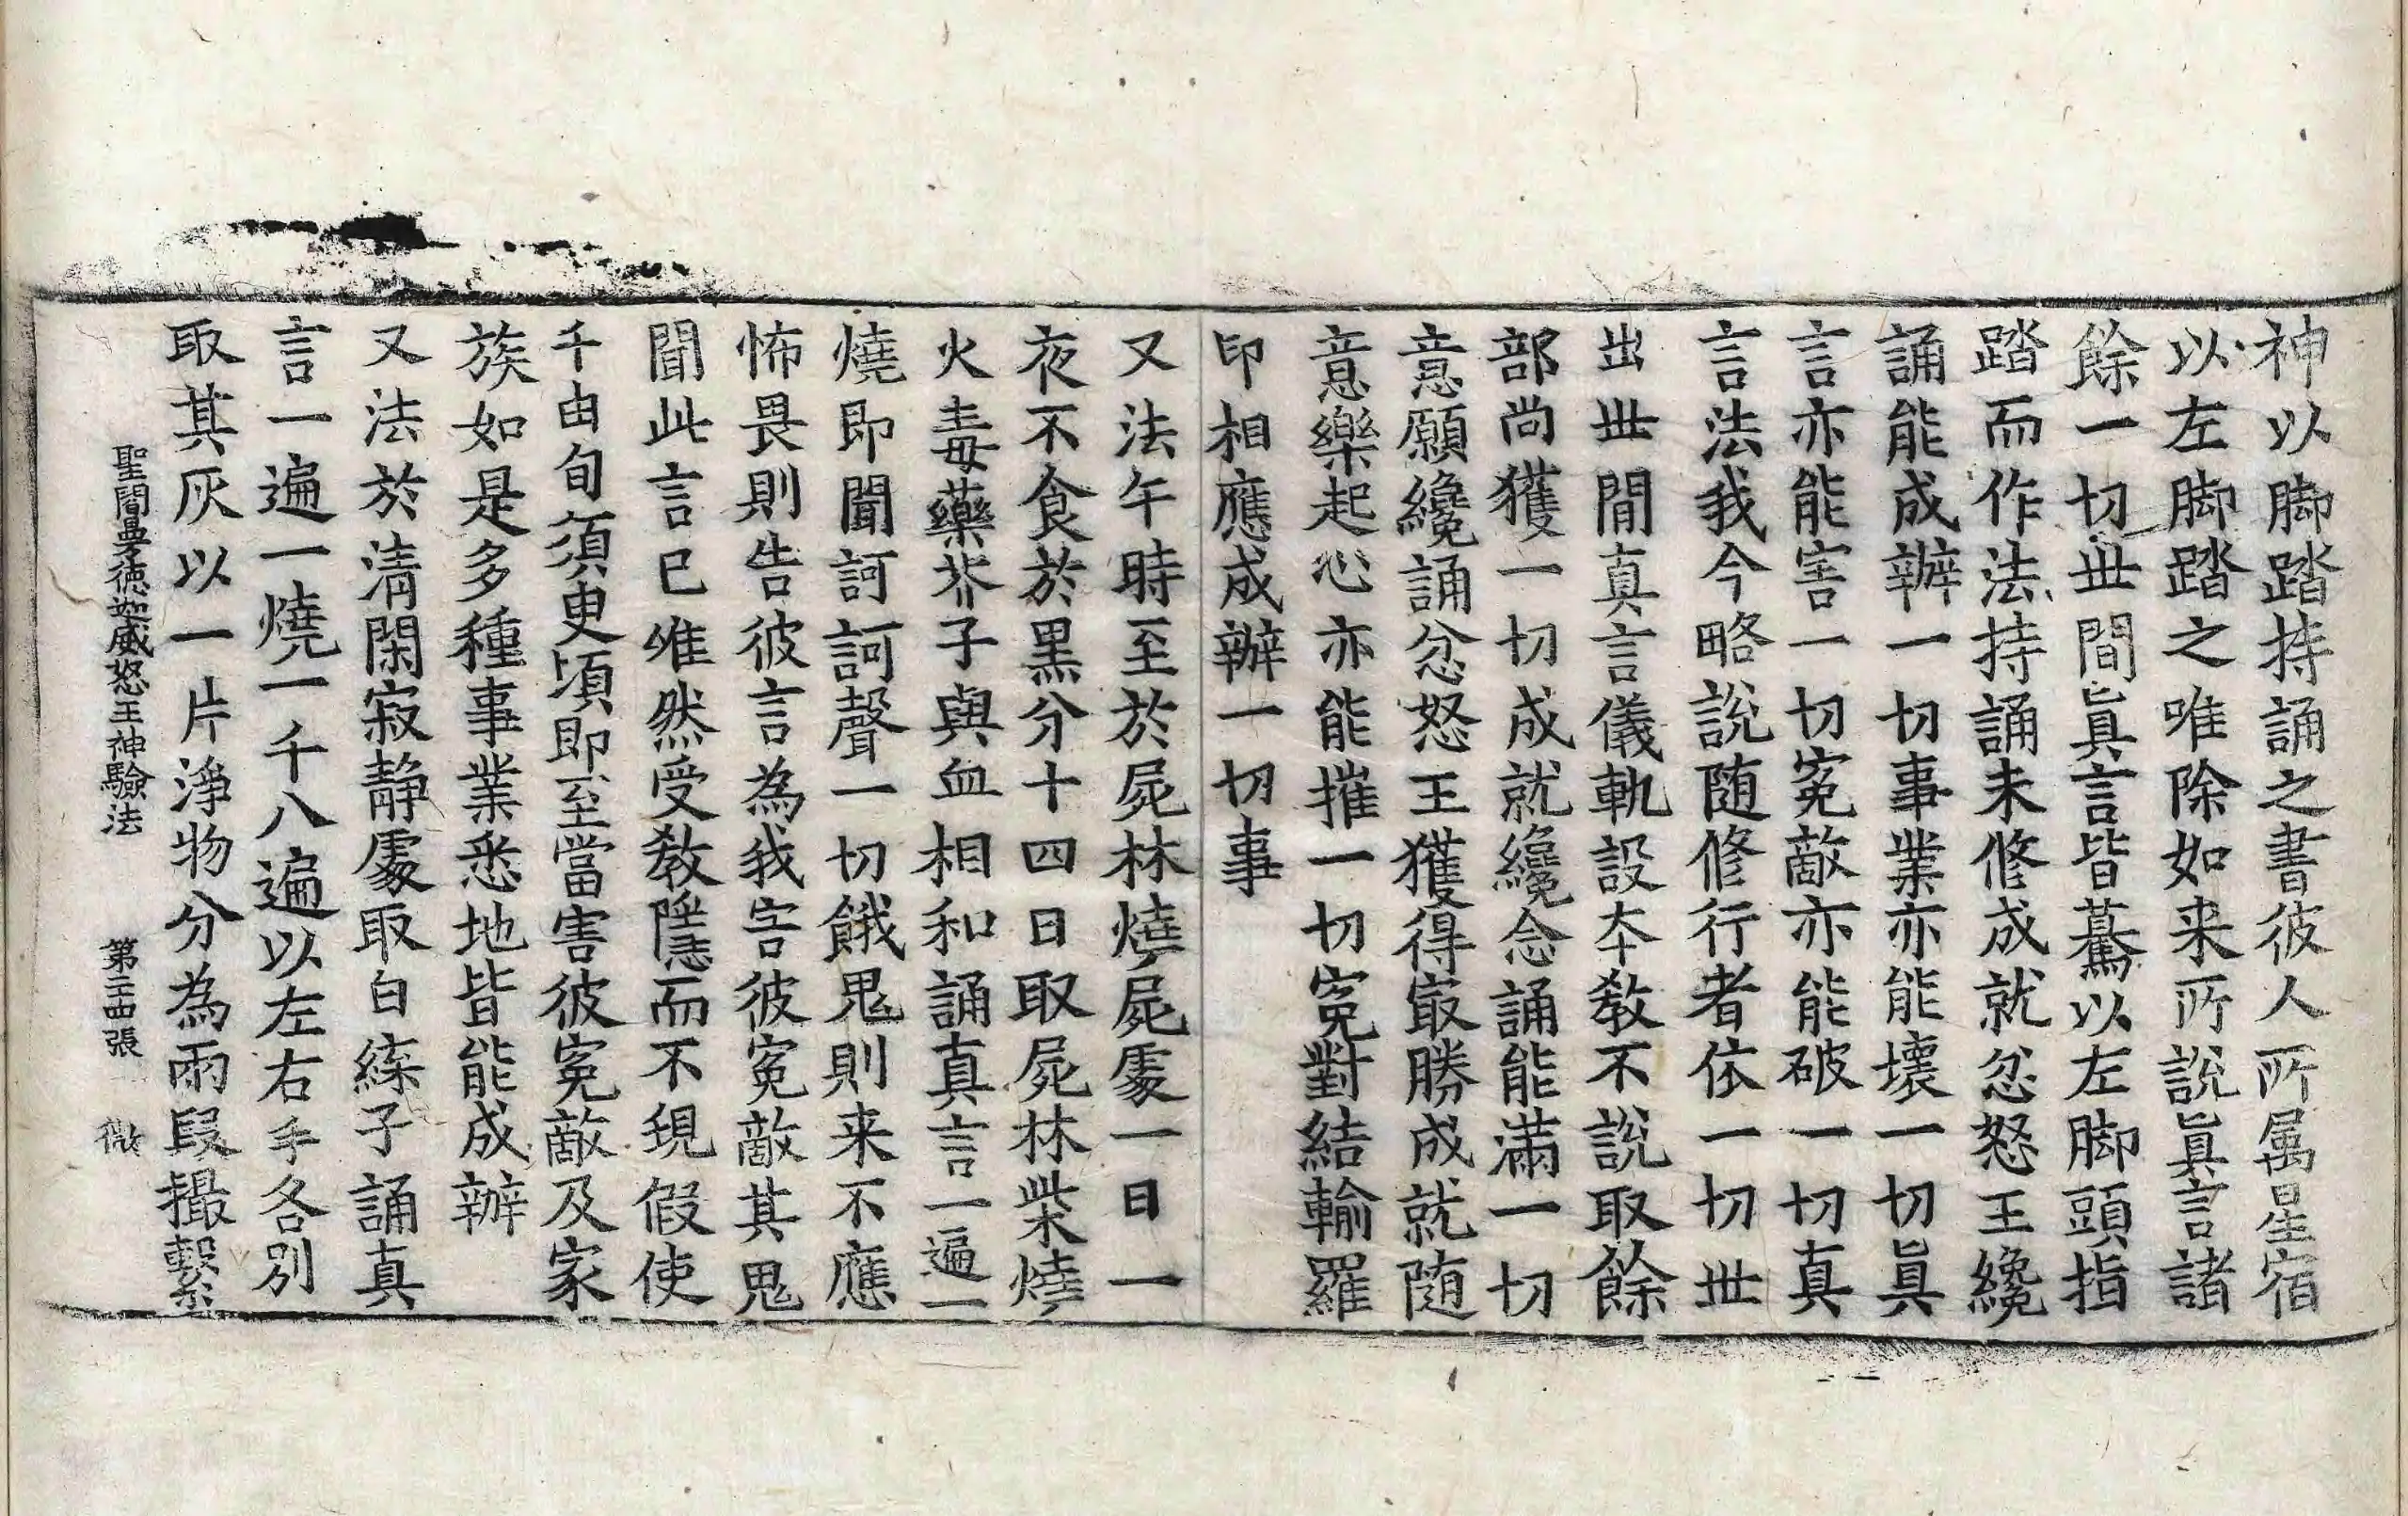 神以脚踏持誦之書彼人所属星宿
以左脚踏之唯除如来所說眞言諸
餘一切丗間眞言皆驀以左脚頭指
踏而作法持誦未修成就忿怒王纔
誦能成辦一切事業亦能壞一切眞
言亦能害一切寃敵亦能破一切真
言法我今略說随修行者依一切世
出丗間真言儀軌設本教不說取餘
部尚獲一切成就纔念誦能滿一切
意願纔誦忿怒王獲得㝡勝成就随
意樂起心亦能摧一切寃對結輸羅
印相應成辦一切事
又法午時至於屍林燒屍處一日一
夜不食於黒分十四日取屍林柴燒
火毒藥芥子與血相和誦真言一遍一
燒即聞訶訶聲一切餓鬼則来不應
怖畏則告彼言為我害彼寃敵其鬼
聞此言已唯然受教隱而不現假使
千由旬須臾頃即至當害彼寃敵及家
族如是多種事業悉地皆能成辦
又法於清閑寂靜處取白練子誦真
言一遍一燒一千八遍以左右手各別
取其灰以一片淨物分為兩段撮繫
聖閻曼徳迦威怒王神驗法 第三四張 微